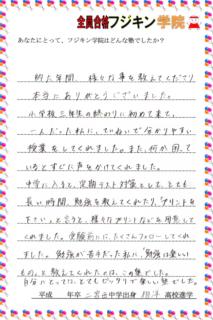 全員合格フジキン学院
あなたにとって、フジキン学院はどんな塾でしたか?
約 年間、様々な事を教えてくださり
本当にありがとうございました。
小学校三年生の終わりに初めて来て、
一人だった私に、ていねいで分かりやすい
授業をしてくれました。また、何か困って
いるとすぐに声をかけてくれました。
中学に入ると、定期テスト対策として、とても
長い時間、勉強を教えてくれたり、「プリントを
下さい。」と言うと、様々なプリントなどを用意して
くれました。受験前には、たくさんフォローしてくれ
ました。勉強が苦手だった私に、「勉強は楽しい
もの。」と教えてくれたのは、この塾でした。
自分にとっては、とてもピッタリで楽しい塾でした。
平成 年卒 二宮西中学出身 高校進学